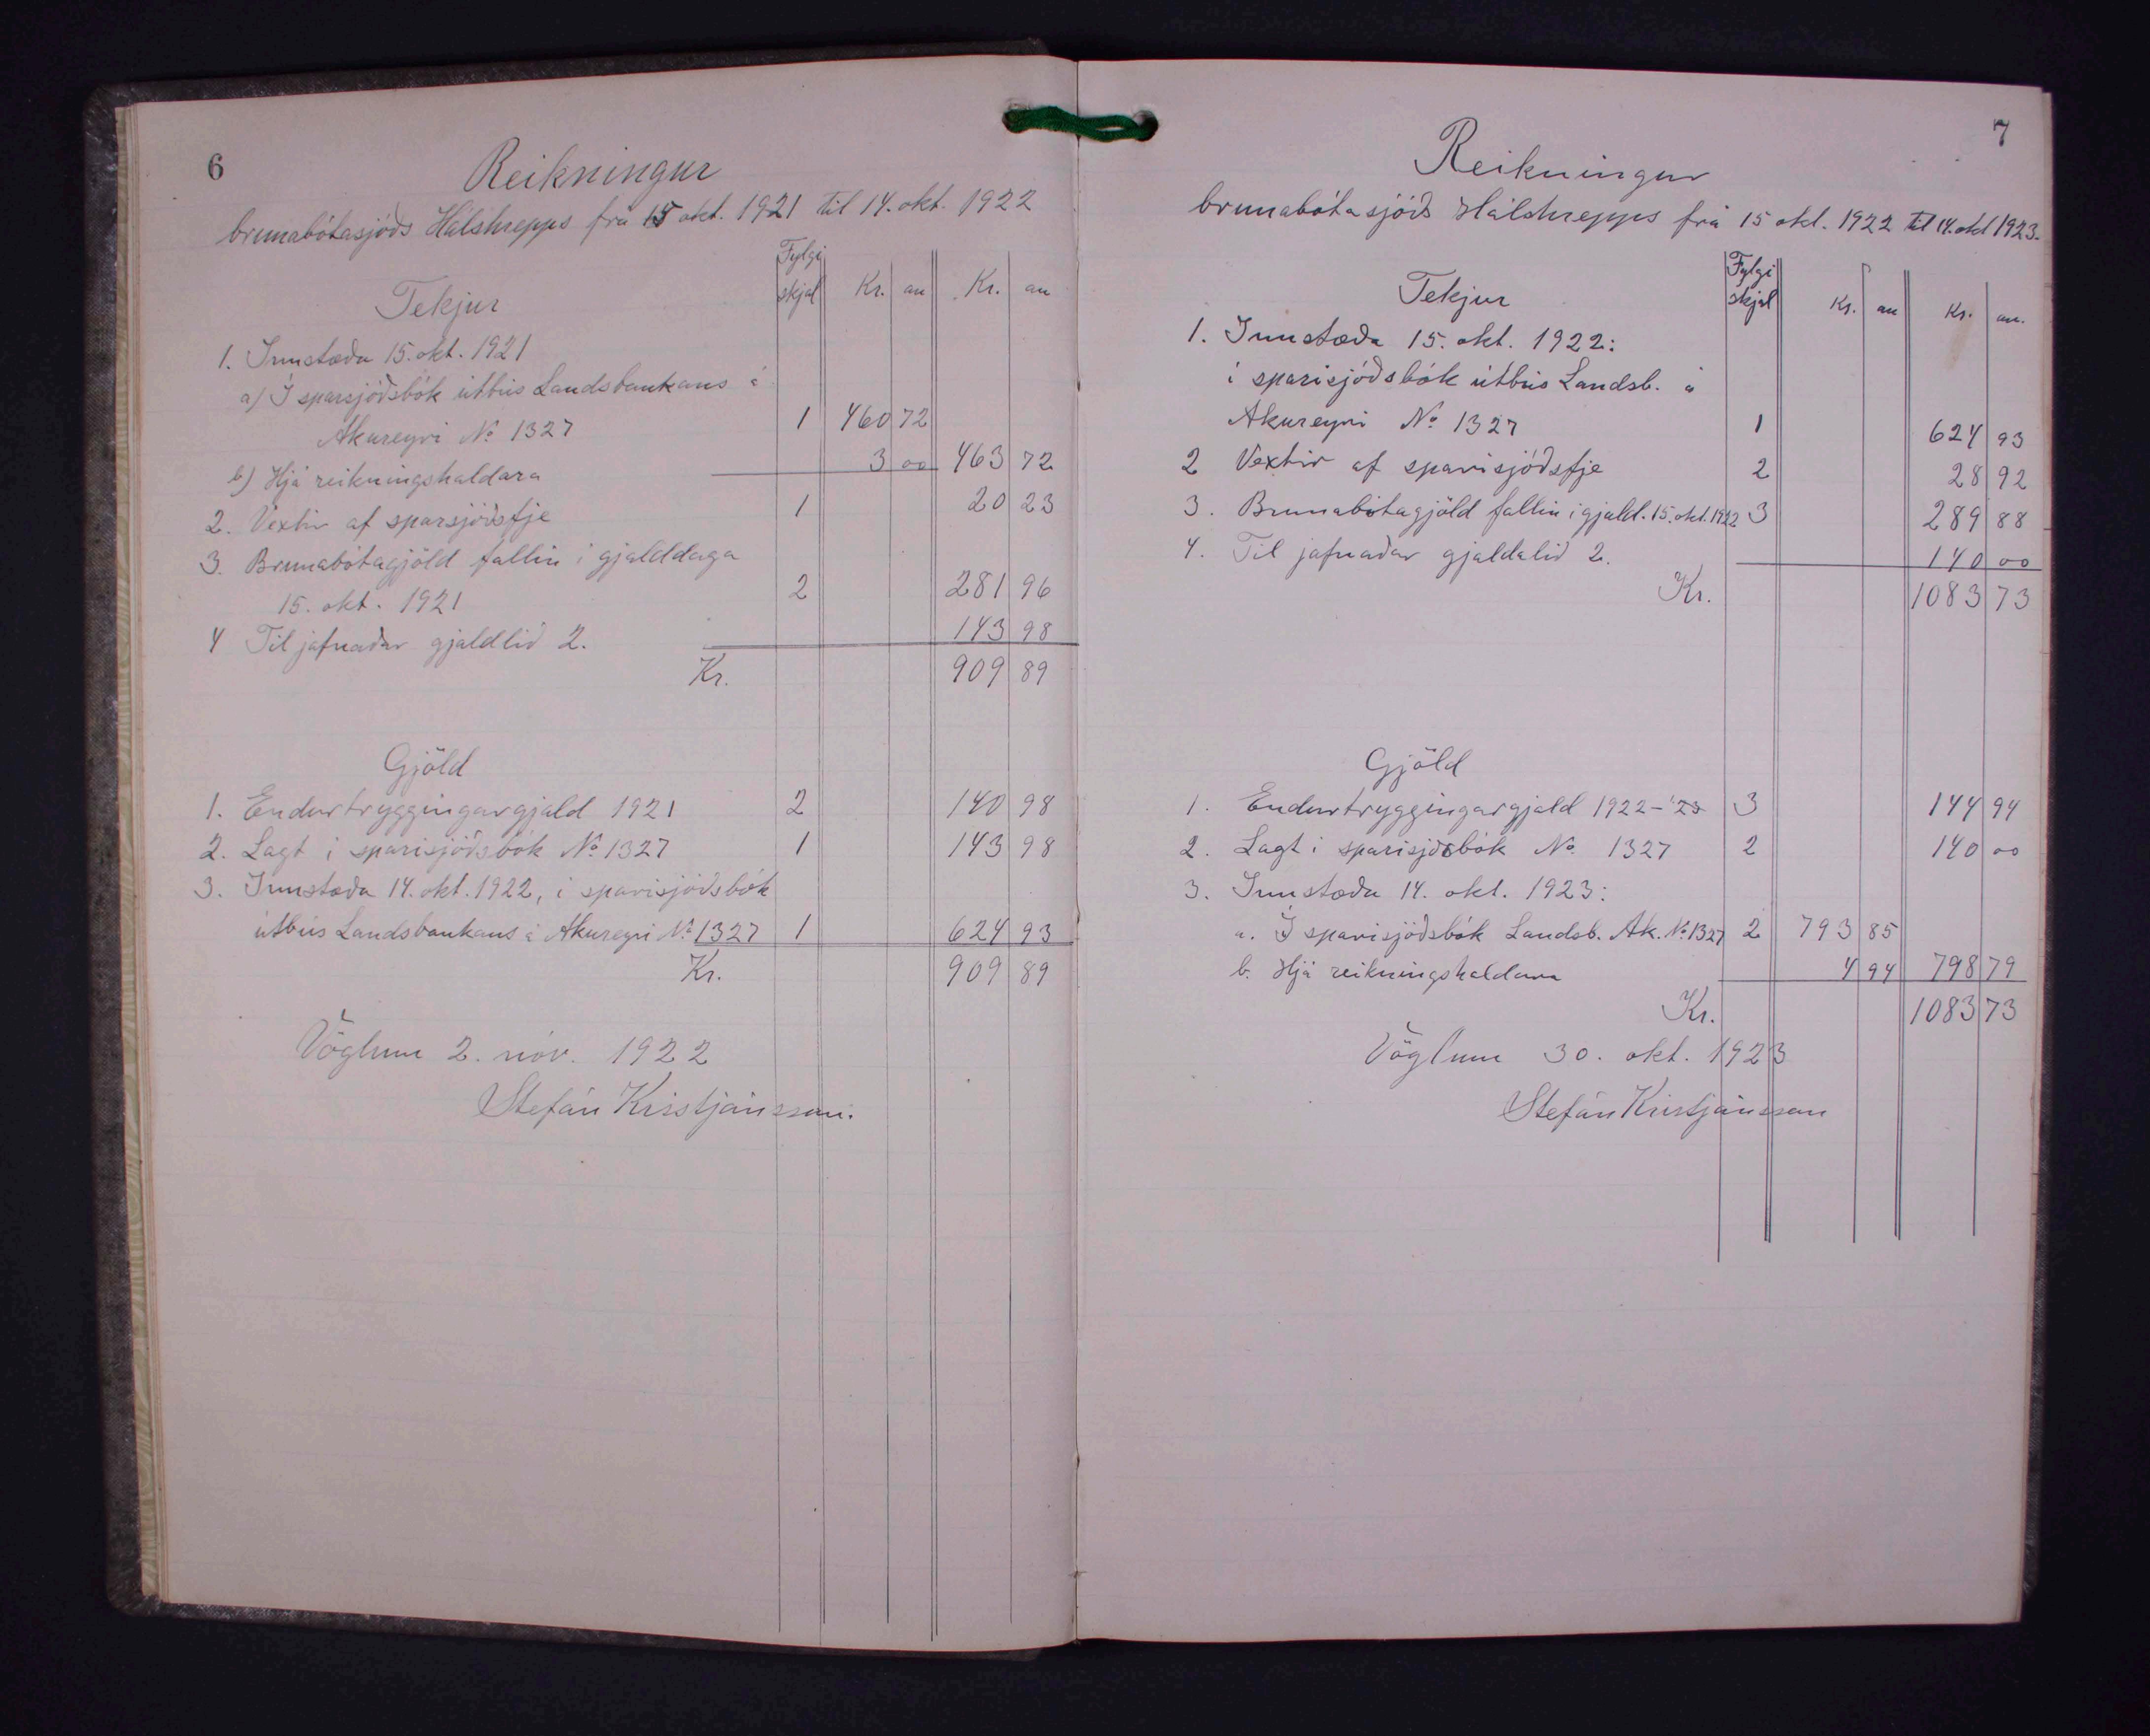 6
Reikningur
brunabótasjóðs Hálshrepps frá 15 okt. 1921 til 14. okt. 1922
Fylgi
Tekjur skjal Kr. au Kr. au
1. Innstæða 15. okt. 1921
a) Í sparsjóðsbók útbús Landsbankans á
Akureyri No 1327 1 460 72
b) Hjá reikningshaldara 3 00 463 72
2. Vextir af sparsjóðsfje 1 20 23
3. Brunabótagjöld fallin í gjalddaga
15. okt. 1921 2 281 96
4 Til jafnaðar gjaldlið 2. 143 98
Kr. 909 89
Gjöld
1. Endurtryggingargjald 1921 2 140 98
2. Lagt í sparisjóðsbók No 1327 1 143 98
3. Innstæða 14. okt. 1922, í sparisjóðsbók
útbús Landsbankans á Akureyri No 1327 1 624 93
Kr. 909 89
Vöglum 2. nóv. 1922
Stefán Kristjánsson.
7
Reikningur
brunabótasjóðs Hálshrepps frá 15 okt. 1922 til 14. okt 1923.
Fylgi
Tekjur skjal Kr. au Kr. au.
1. Innstæða 15. okt. 1922:
í sparisjóðsbók útbús Landsb. á
Akureyri No 1327 1 624 93
2 Vextir af sparisjóðsfje 2 28 92
3. Brunabótagjöld fallin í gjald. 15. okt. 1922 3 289 88
4. Til jafnaðar gjaldalið 2. 140 00
Kr. 1083 73
Gjöld
1. Endurtryggingargjald 1922-'23 3 144 94
2. Lagt í sparisjóðsbók No 1327 2 140 00
3. Innstæða 14. okt. 1923:
a. Í sparisjóðsbók Landsb. Ak. No 1327 2 793 85
b. Hjá reikningshaldara 4 94 798 79
Kr. 1083 73
Vöglum 30. okt. 1923
Stefán Kristjánsson